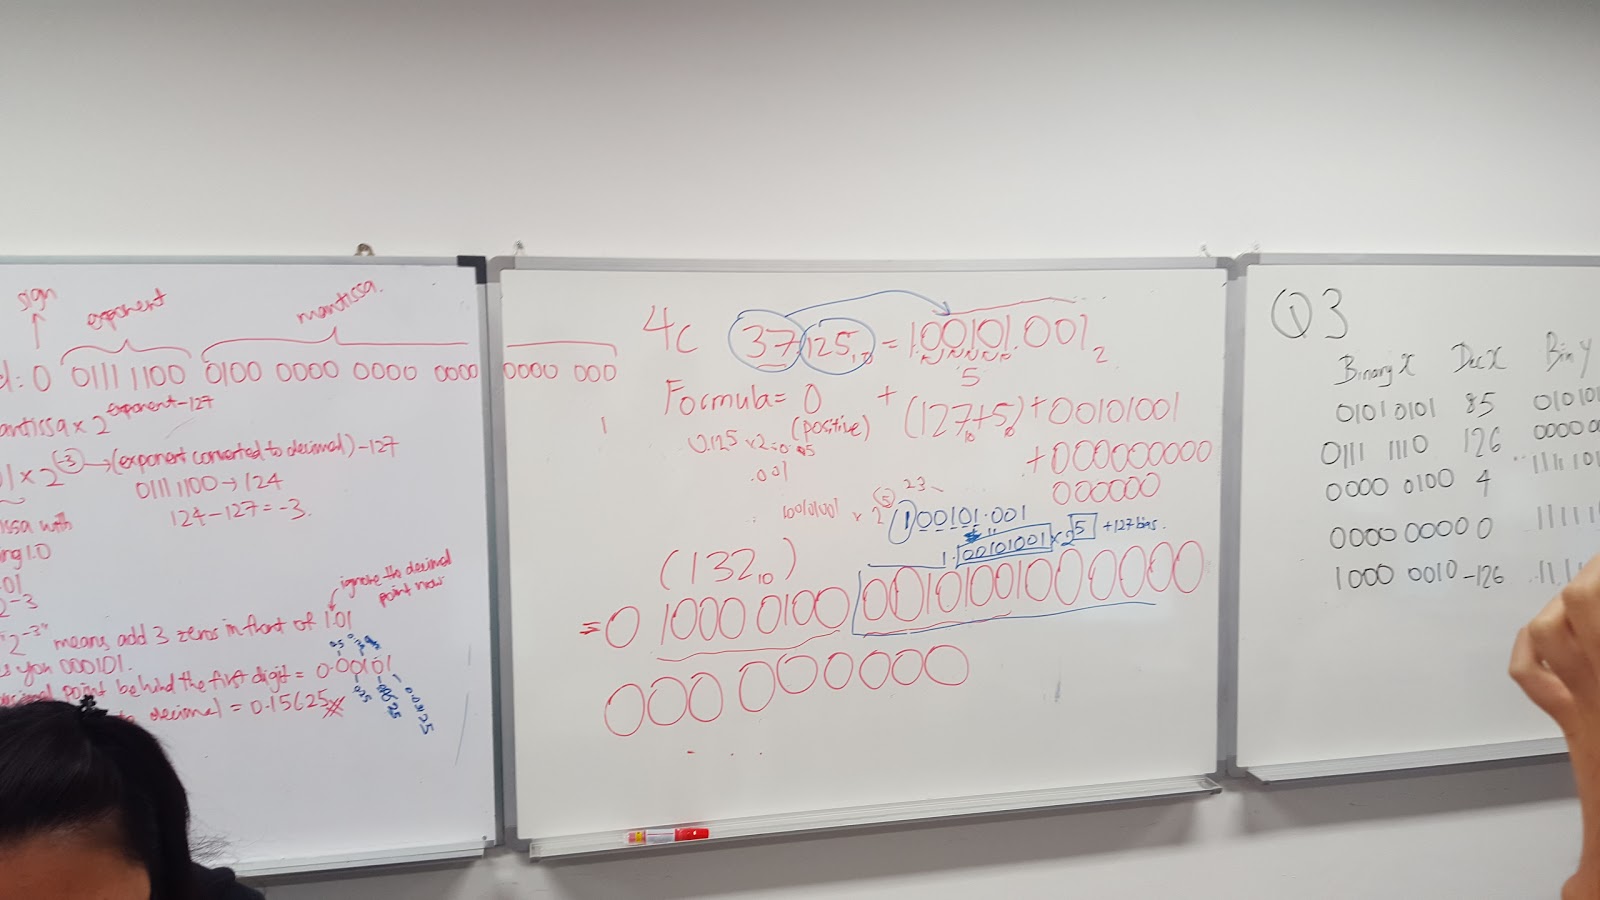 sign
exponent
mantissa.
: 0 0111 1100 0100 0000 0000 0000 0000 000
mantissa x 2 exponent-127
1 x 2 -3 → (exponent converted to decimal) -127
0111 1100 → 124
124 - 127 = -3.
with
1.0
01
2 -3
ignore the decimal
point now
"2 -3" means add 3 zeros in front of 1.01
you 000101.
point behind the first digit = 0.00101
decimal = 0.15625
0.03125
4c 37.125 10 = 100101.001 2
5
Formula = 0 + (127 10 + 5 10) + 00101001
(positive)
+ 000000000
000000
0.125 x 2 =
.001
1
23
100101001 x 2 5
100101.001
1.00101001 x 2 5 +127 bias.
(132 10)
= 0 1000 0100 00101001000 0000
000 000000
Q3
Binary X Dec X Bin Y
0101 0101 85 010101
0111 1110 126 00000
0000 0100 4 1111 101
0000 0000 0 11111
1000 0010 -126 11.1